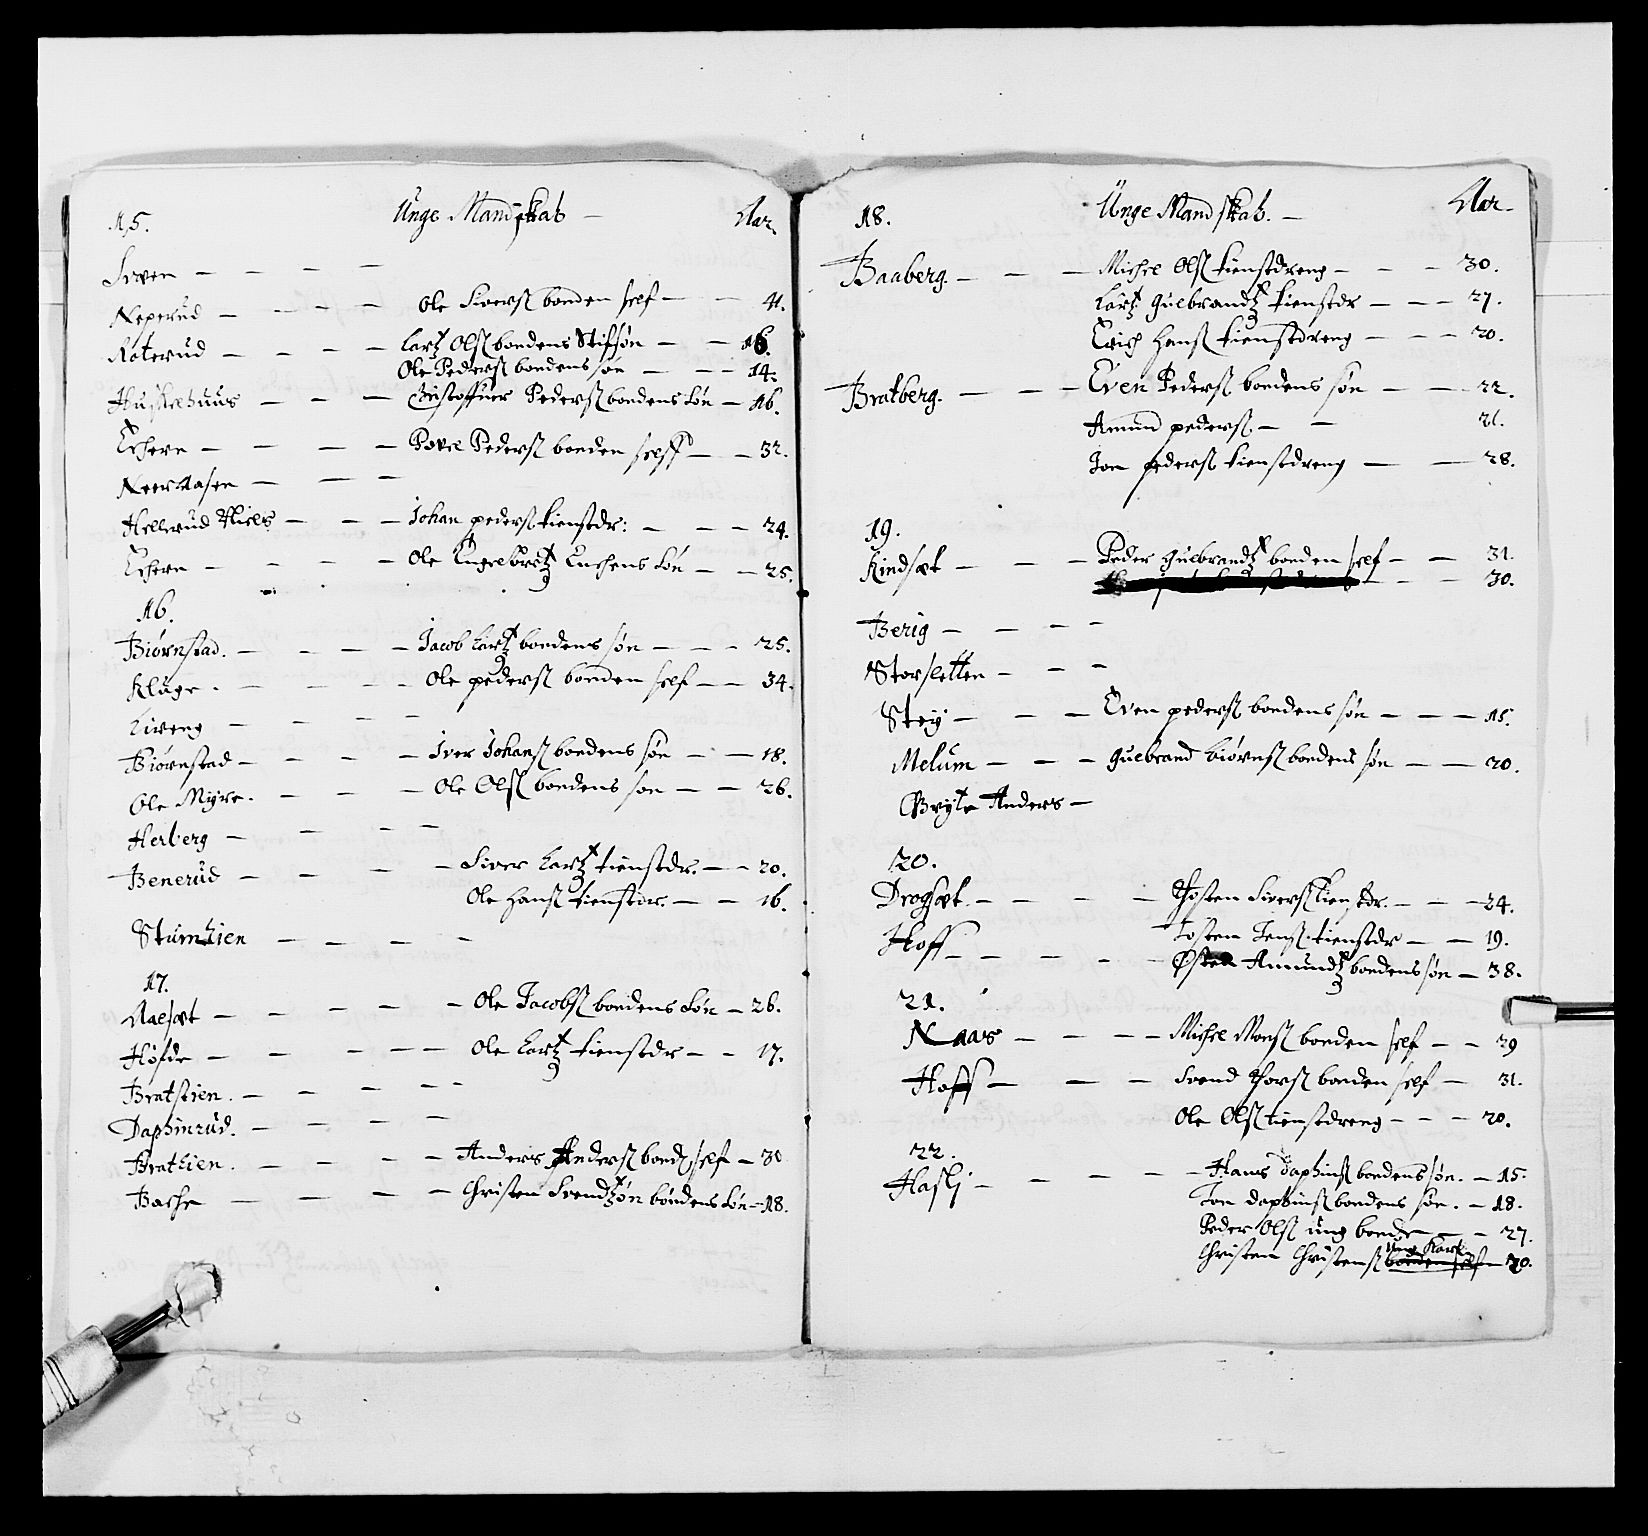 15. Unge Mandskab — Aar.
Sven — — — —
Neperud — — — — Ole Sivers. bonden self — — 41.
Roterud — — — — Lartz Ols. bondens Stifsøn — — 16.
Ole Peders. bondens søn — — — 14.
Huskehuus — — — Christoffuer Peders. bondens Søn — 16.
Echern — — — — Povel Peders. bonden selff — — 32.
Neeraasen — — —
Hellerud Niels — — — Johan peders. tienstdr: — — — 24.
Echern — — — — Ole Engelbretz Enchens Søn — — 25.
16.
Biørnstad. — — — — Jacob Lartz bondens søn — — — 25.
Kluge. — — — Ole peders. bonden self — — 34.
Liveng — — — —
Biørnstad — — — — Iver Johans. bondens søn — — 18.
Ole Myre. — — — Ole Ols. bondens søn — — 26.
Herberg — — — —
Benerud — — — — Siver Lartz tienstdr. — — 20.
Ole Hans. tienstdr. — — 16.
Stumlien — — — —
17.
Aalsæt — — — — Ole Jacobs. bondens Søn — 26.
Høfde — — — — — Ole Lartz tienstdr — — 17.
Bratlien. — — — — —
Daphinrud. — — — —
Brathien. — — — — Anders Anders. bond. self — 30
Bache — — — — Christen Svendtzøn bondens Søn — 18.
18. Unge Mandskab. — Aar.
Baaberg. — — — Michel Ols. tienstdreng — — — 30.
Lartz Gulbrandtz tienstdr — — — 27.
Erich Hans. tienstdreng — — — 20.
Bratberg. — — — Even Peders. bondens søn — — — 22.
Amund peders. — — 21.
Jon peders. tienstdreng — — 28.
19.
Kindsæt — — — Peder Gulbrandtz bonden self — — 31.
— — — 30.
Berig — — — —
Storsletten — — —
Stey — — — Even peders. bondens søn — — — 15.
Melum — — — Gulbrand Biørns. bondens søn — — 20.
Bryte Anders —
20.
Drogsæt. — — — — Tosten Sivers. tienstdr. — — — 24.
Hoff — — — — — Tosten Jens. tienstdr — — 19.
Amundtz bondens søn — 38.
21.
Naas — — — — Michel Mons. bonden self — — 29
Hoff — — — Svend Thors. bonden self — 31.
Ole Ols. tienstdreng — — — 20.
22.
Haslj — — — — — Hans Daphins. bondens søn. — 15.
Jon Daphins. bondens søn. — 18.
Peder Ols. ung bonde — — 27.
Ung Karl
Christen Christens. bonden self — 20.